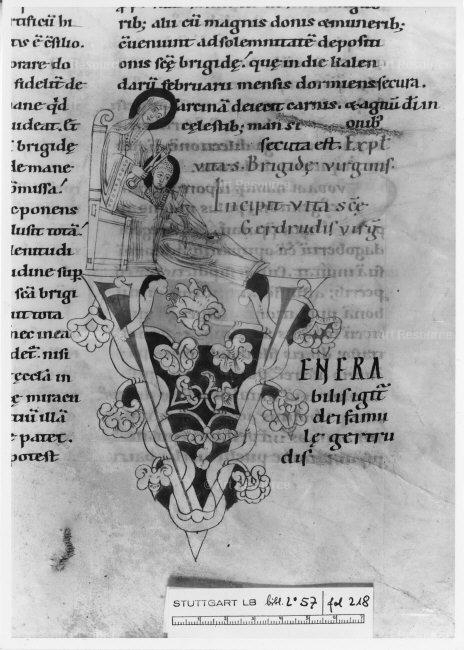 tificiũ hi
tas ẽ ẽstilo.
orare do
fidelit̃ de
ane qd̃
udeat. Et
brigidę
de mane
õmissa!
eponens
lusit totã!
lentudi
udine sup
scã brigi
ut tota
nec in ea
det. nisi
eccla in
e miracu
tiuĩ illã
e patet.
potest
rib; alii cũ magnis donis & muneribꝫ
eueniunt ad solemnitatẽ depositi
onis scẽ brigidę! que in die kalen
darũ februarii mensis dormiens secura.
sarcinã deiecit carnis. & agnũ di in
celestibꝫ man si onibꝫ
secuta est. Expl̃.
vita s. Brigidę virginis.
Incipit vita scẽ
Gerdrudis virg̃
ENERA
bilis igit̃
dei famu
lę gertru
dis
STUTTGART LB bibl. 2° 57 fol 218